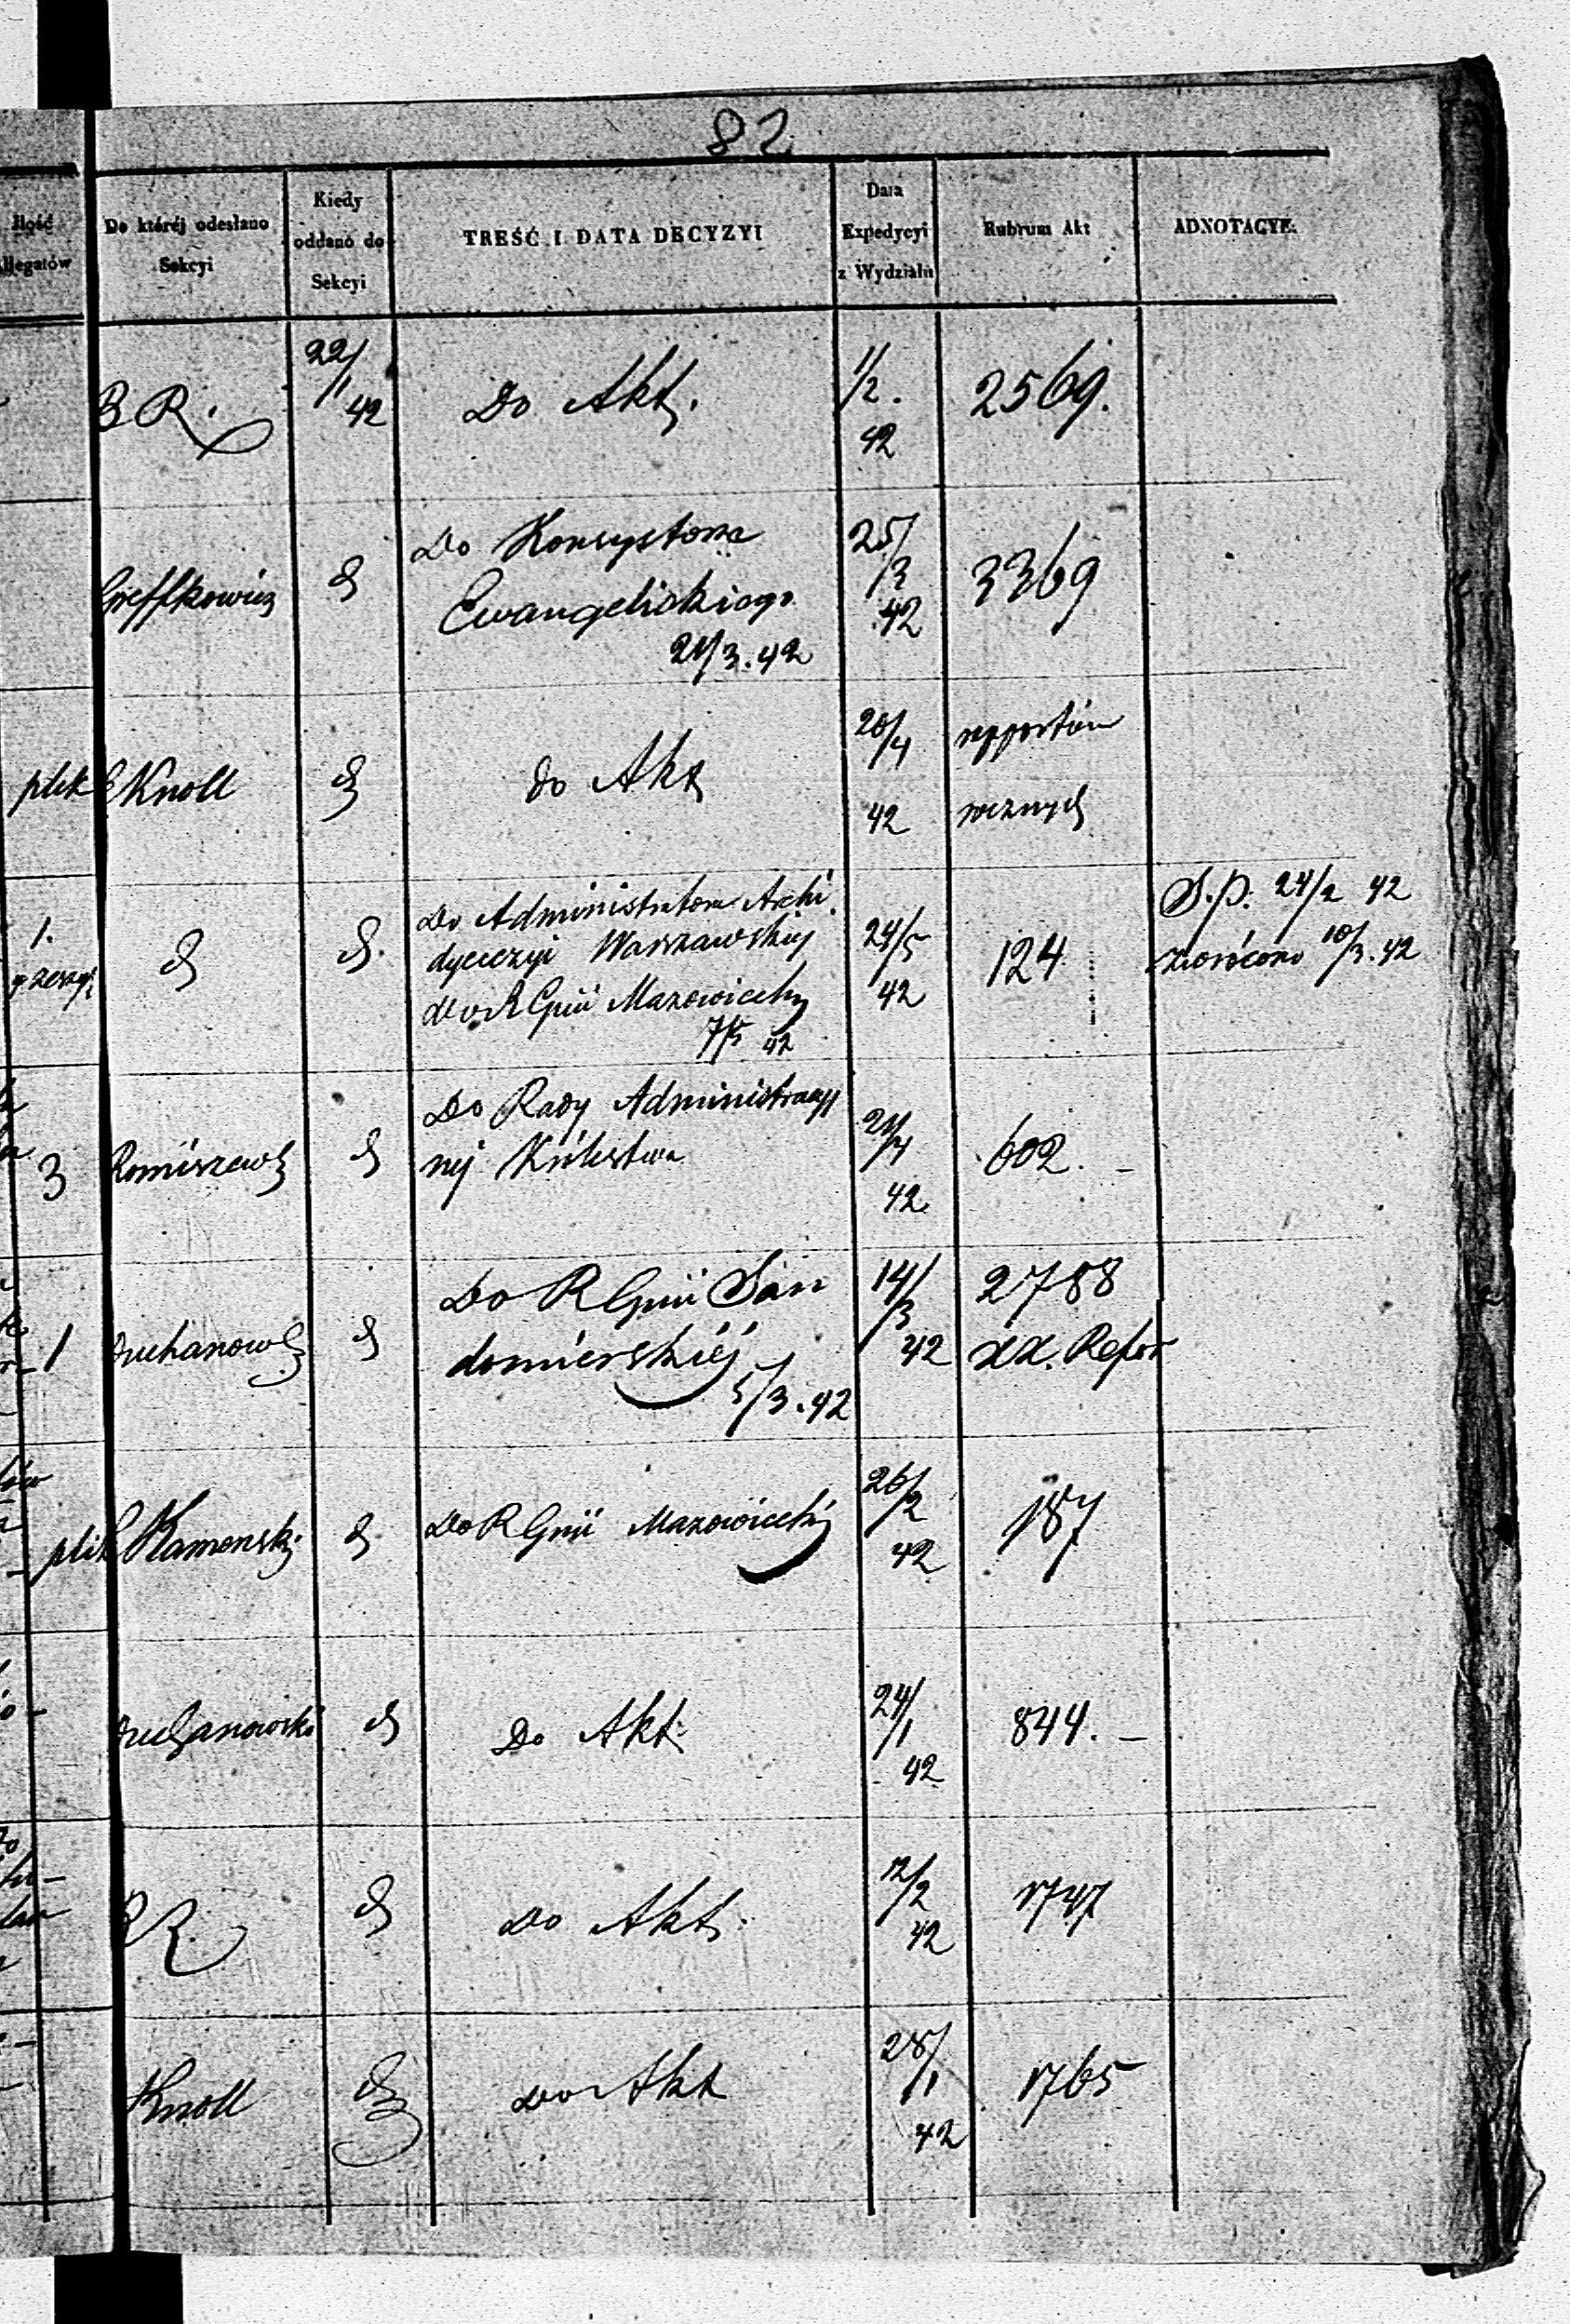 82
Ilość
Allegatów
Do któréj odesłano
Sekcyi
Kiedy
oddano do
Sekcyi
TREŚĆ I DATA DECYZYI
Data
Expedycyi
z Wydziału
Rubrum Akt
ADNOTACYE.
B R.
22/1 42
Do Akt.
1/2. 42
2569.
Do Konsystorza
Ewangelickiego
21/3.42
25/3 42
3369
plik
Knoll
do Akt
20/4 42
rapportów
rocznych
1.
Do Administratora Archi
dyecezyi Warszawskiej
do R Gnii Mazowieckiej
7/5 42
24/5 42
124
S.P. 24/2 42
zwrócono 10/3.42
3
Do Rady Administracyj
nej Królestwa
21/4 42
602. –
1
Do R Gnii San
domierskiéj
5/3.42
14/3 42
2788
XX. Refor
plik
Kamenski
Do R Gnii Mazowieckiej
26/2 42
187
Do Akt.
24/1 42
844. –
R.
Do Akt.
12/2 42
1747
Knoll
Do Akt
28/1 42
1765